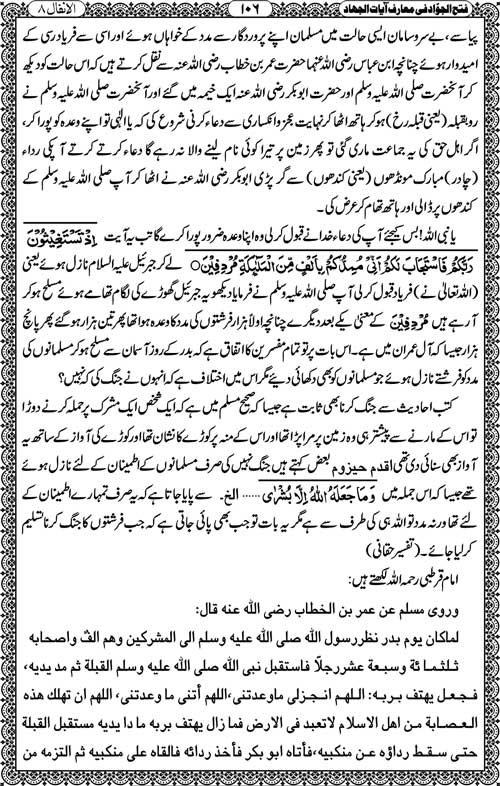 فتح الجوّاد فی معارف آیات الجهاد ۱۰۶ الانفال ۸
پیاسے، بے سروسامان ایسی حالت میں مسلمان اپنے پروردگار سے مدد کے خواہاں ہوئے اور اسی سے فریادرسی کے
امیدوار ہوئے چنانچہ ابن عباس رضی اللہ عنہما حضرت عمر بن خطاب رضی اللہ عنہ سے نقل کرتے ہیں کہ اس حالت کو دیکھ
کر آنحضرت صلی اللہ علیہ وسلم اور حضرت ابوبکر رضی اللہ عنہ ایک خیمہ میں گئے اور آنحضرت صلی اللہ علیہ وسلم نے
روبقبلہ (یعنی قبلہ رخ) ہو کر ہاتھ اٹھا کر نہایت عجز وانکساری سے دعاء کرنی شروع کی کہ یا الٰہی تو اپنے وعدہ کو پورا کر،
اگر اہل حق کی یہ جماعت ماری گئی تو پھر زمین پر تیرا کوئی نام لینے والا نہ رہے گا دعاء کرتے کرتے آپ کی رداء
(چادر) مبارک مونڈھوں (یعنی کندھوں) سے گر پڑی ابوبکر رضی اللہ عنہ نے اٹھا کر آپ صلی اللہ علیہ وسلم کے
کندھوں پر ڈالی اور ہاتھ تھام کر عرض کی۔
یا نبی اللہ! بس کیجئے آپ کی دعاء خدا نے قبول کر لی وہ اپنا وعدہ ضرور پورا کرے گا تب یہ آیت اِذْ تَسْتَغِيْثُوْنَ
رَبَّكُمْ فَاسْتَجَابَ لَكُمْ اَنِّيْ مُمِدُّكُمْ بِاَلْفٍ مِّنَ الْمَلٰٓئِكَةِ مُرْدِفِيْنَ○ لے کر جبرئیل علیہ السلام نازل ہوئے یعنی
(اللہ تعالیٰ نے) فریاد قبول کر لی آپ صلی اللہ علیہ وسلم نے فرمایا دیکھو یہ جبرئیل گھوڑے کی لگام تھامے ہوئے مسلح ہو کر
آ رہے ہیں مُرْدِفِيْنَ کے معنی یکے بعد دیگرے چنانچہ اولاً ہزار فرشتوں کی مدد کا وعدہ ہوا تھا پھر تین ہزار ہو گئے پھر پانچ
ہزار جیسا کہ آل عمران میں ہے۔ اس بات پر تو تمام مفسرین کا اتفاق ہے کہ بدر کے روز آسمان سے مسلح ہو کر مسلمانوں کی
مدد کو فرشتے نازل ہوئے جو مسلمانوں کو بھی دکھائی دیئے مگر اس میں اختلاف ہے کہ انہوں نے جنگ کی کہ نہیں؟
کتب احادیث سے جنگ کرنا بھی ثابت ہے جیسا کہ صحیح مسلم میں ہے کہ ایک شخص ایک مشرک پر حملہ کرنے دوڑا
تو اس کے مارنے سے پیشتر ہی وہ زمین پر مرا پڑا تھا اور اس کے منہ پر کوڑے کا نشان تھا اور کوڑے کی آواز کے ساتھ یہ
آواز بھی سنائی دی تھی اقدم حیزوم بعض کہتے ہیں جنگ نہیں کی صرف مسلمانوں کے اطمینان کے لئے نازل ہوئے
تھے جیسا کہ اس جملہ میں وَمَا جَعَلَهُ اللّٰهُ اِلَّا بُشْرٰى ...... الخ۔ سے پایا جاتا ہے کہ یہ صرف تمہارے اطمینان کے
لئے تھا ورنہ مدد تو اللہ ہی کی طرف سے ہے مگر یہ بات تو جب بھی پائی جاتی ہے کہ جب فرشتوں کا جنگ کرنا تسلیم
کر لیا جائے۔ (تفسیر حقانی)
امام قرطبی رحمہ اللہ لکھتے ہیں:
وروى مسلم عن عمر بن الخطاب رضى الله عنه قال:
لماكان يوم بدر نظررسول الله صلى الله عليه وسلم الى المشركين وهم الف واصحابه
ثلثمائة وسبعة عشررجلاً فاستقبل نبى الله صلى الله عليه وسلم القبلة ثم مد يديه،
فجعل يهتف بربه: اللهم انجزلى ماوعدتنى،اللهم أتنى ما وعدتنى، اللهم ان تهلك هذه
العصابة من اهل الاسلام لاتعبد فى الارض فما زال يهتف بربه ما دا يديه مستقبل القبلة
حتى سقط رداؤه عن منكبيه،فأتاه ابو بكر فأخذ ردائه فالقاه على منكبيه ثم التزمه من